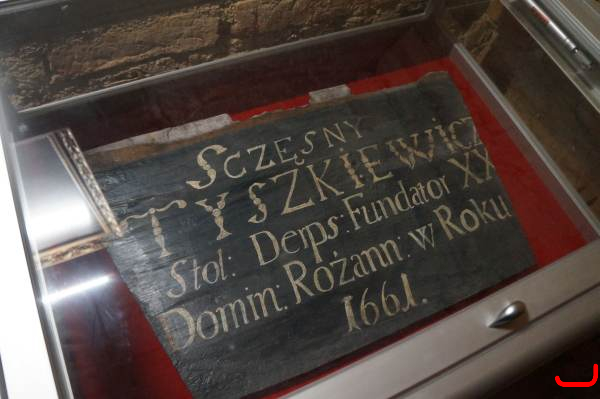 SCZĘSNY
TYSZKIEWICZ
Stol: Derps: Fundator XX
Domin: Rożann: w Roku
1661.